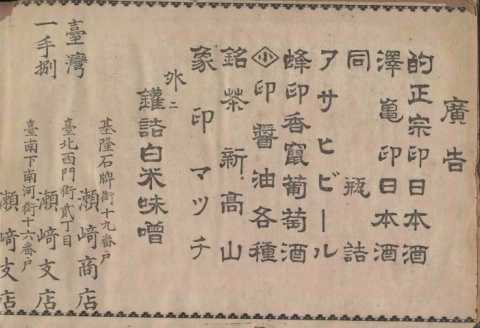 廣告
的正宗印日本酒
澤亀印日本酒
同瓶詰
アサヒビール
蜂印香竄葡萄酒
小印醤油各種
銘茶新高山
象印マッチ
外ニ
罐詰白米味噌
基隆石牌街十九番戶
瀨﨑商店
臺北西門街貳丁目
瀨﨑支店
臺南下南河街十六番戶
瀨﨑支店
臺灣
一手捌